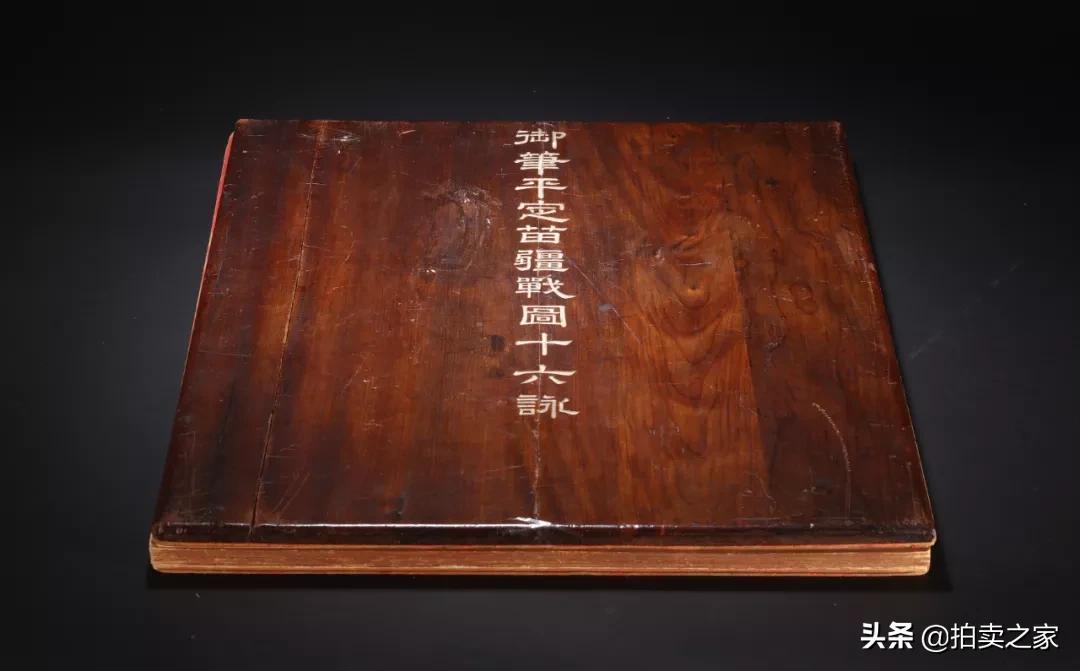 御筆平定苗疆戰圖十六詠
头条 @拍卖之家